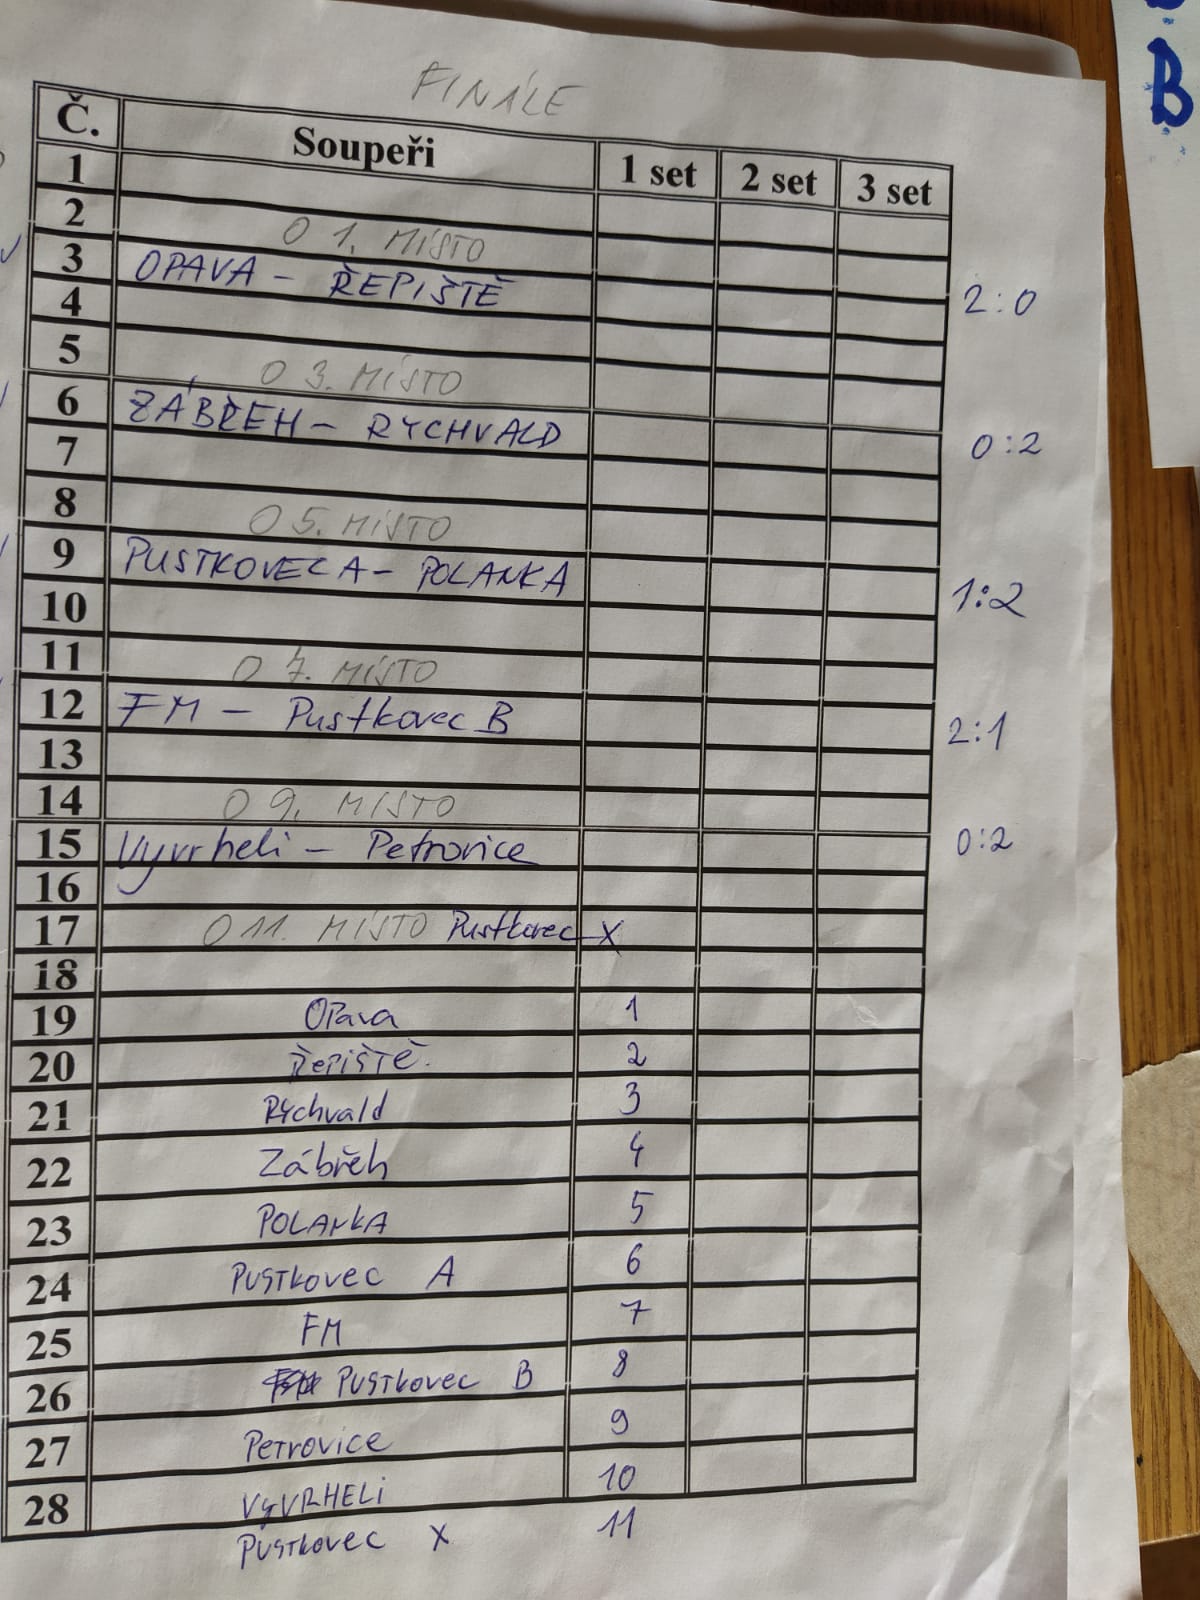 FINÁLE
Č. Soupeři 1 set 2 set 3 set
1
2 O 1. MÍSTO
3 OPAVA - ŘEPIŠTĚ 2:0
4
5 O 3. MÍSTO
6 ZÁBŘEH - RYCHVALD 0:2
7
8 O 5. MÍSTO
9 PUSTKOVEC A - POLANKA 1:2
10
11 O 7. MÍSTO
12 FM - Pustkovec B 2:1
13
14 O 9. MÍSTO
15 Vyvrheli - Petrovice 0:2
16
17 O 11. MÍSTO Pustkovec X
18
19 Opava 1
20 ŘEPIŠTĚ. 2
21 Rychvald 3
22 Zábřeh 4
23 POLANKA 5
24 PUSTKOVEC A 6
25 FM 7
26 PUSTKOVEC B 8
27 PETROVICE 9
28 VYVRHELI 10
PUSTKOVEC X 11
B